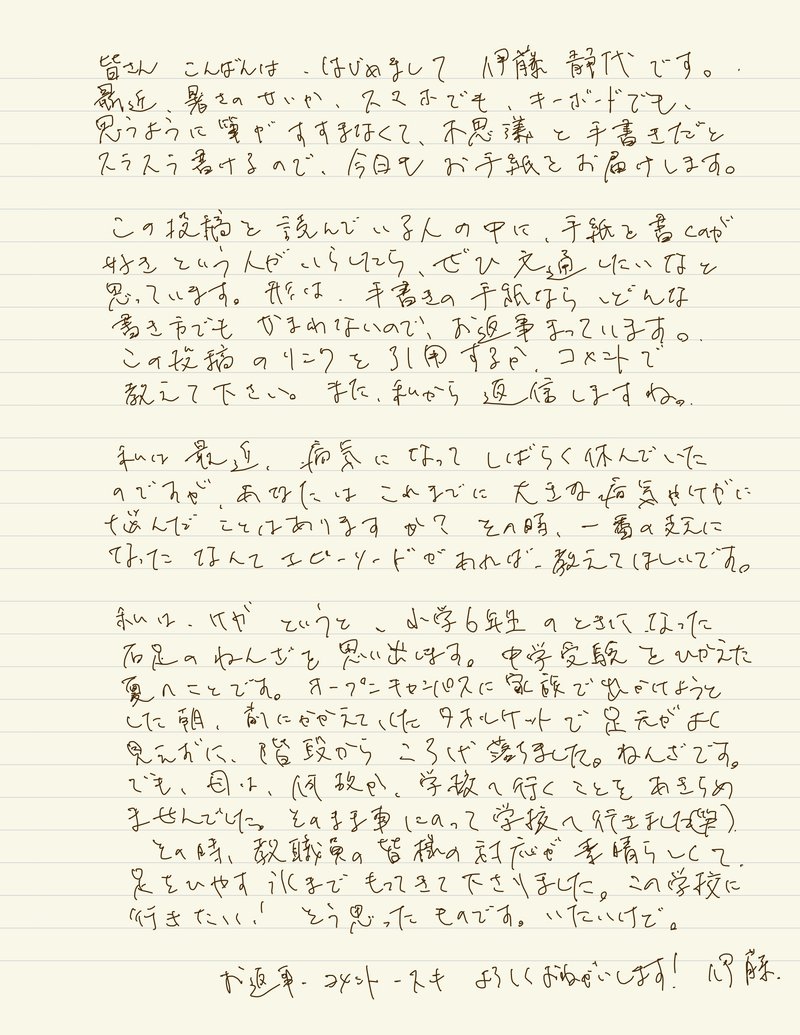 皆さん こんばんは、はじめまして 伊藤 静代です。
最近、暑さのせいか、スマホでも、キーボードでも、
思うように筆がすすまなくて、不思議と手書きだと
スラスラ書けるので、今日も お手紙をお届けします。
この投稿を読んでいる人の中に、手紙を書くのが
好きという人がいらしたら、ぜひ文通したいなと
思っています。形は、手書きの手紙なら、どんな
書き方でもかまわないので、お返事まっています。
この投稿のリンクを引用するか、コメントで
教えて下さい。また、私から返信しますね。
私は最近、病気になってしばらく休んでいた
のですが、あなたはこれまでに大きな病気やけがに
悩んだことはありますか？その時、一番の支えに
なったなんてエピーソードがあれば、教えてほしいです。
私は、けがというと、小学6年生のときになった
右足のねんざを思い出します。中学受験をひかえた
夏のことです。オープンキャンパスに家族で出かけようと
した朝、前にかかえていたタオルケットで足元がよく
見えずに、階段からころげ落ちました。ねんざです。
でも、母は、何故か、学校へ行くことをあきらめ
ませんでした。そのまま車にのって学校へ行きました(笑)
その時、教職員の皆様の対応が素晴らしくて、
足をひやす氷までもってきて下さりました。この学校に
行きたい！そう思ったものです。いたいけで。
お返事・コメント・スキ よろしくおねがいします！ 伊藤